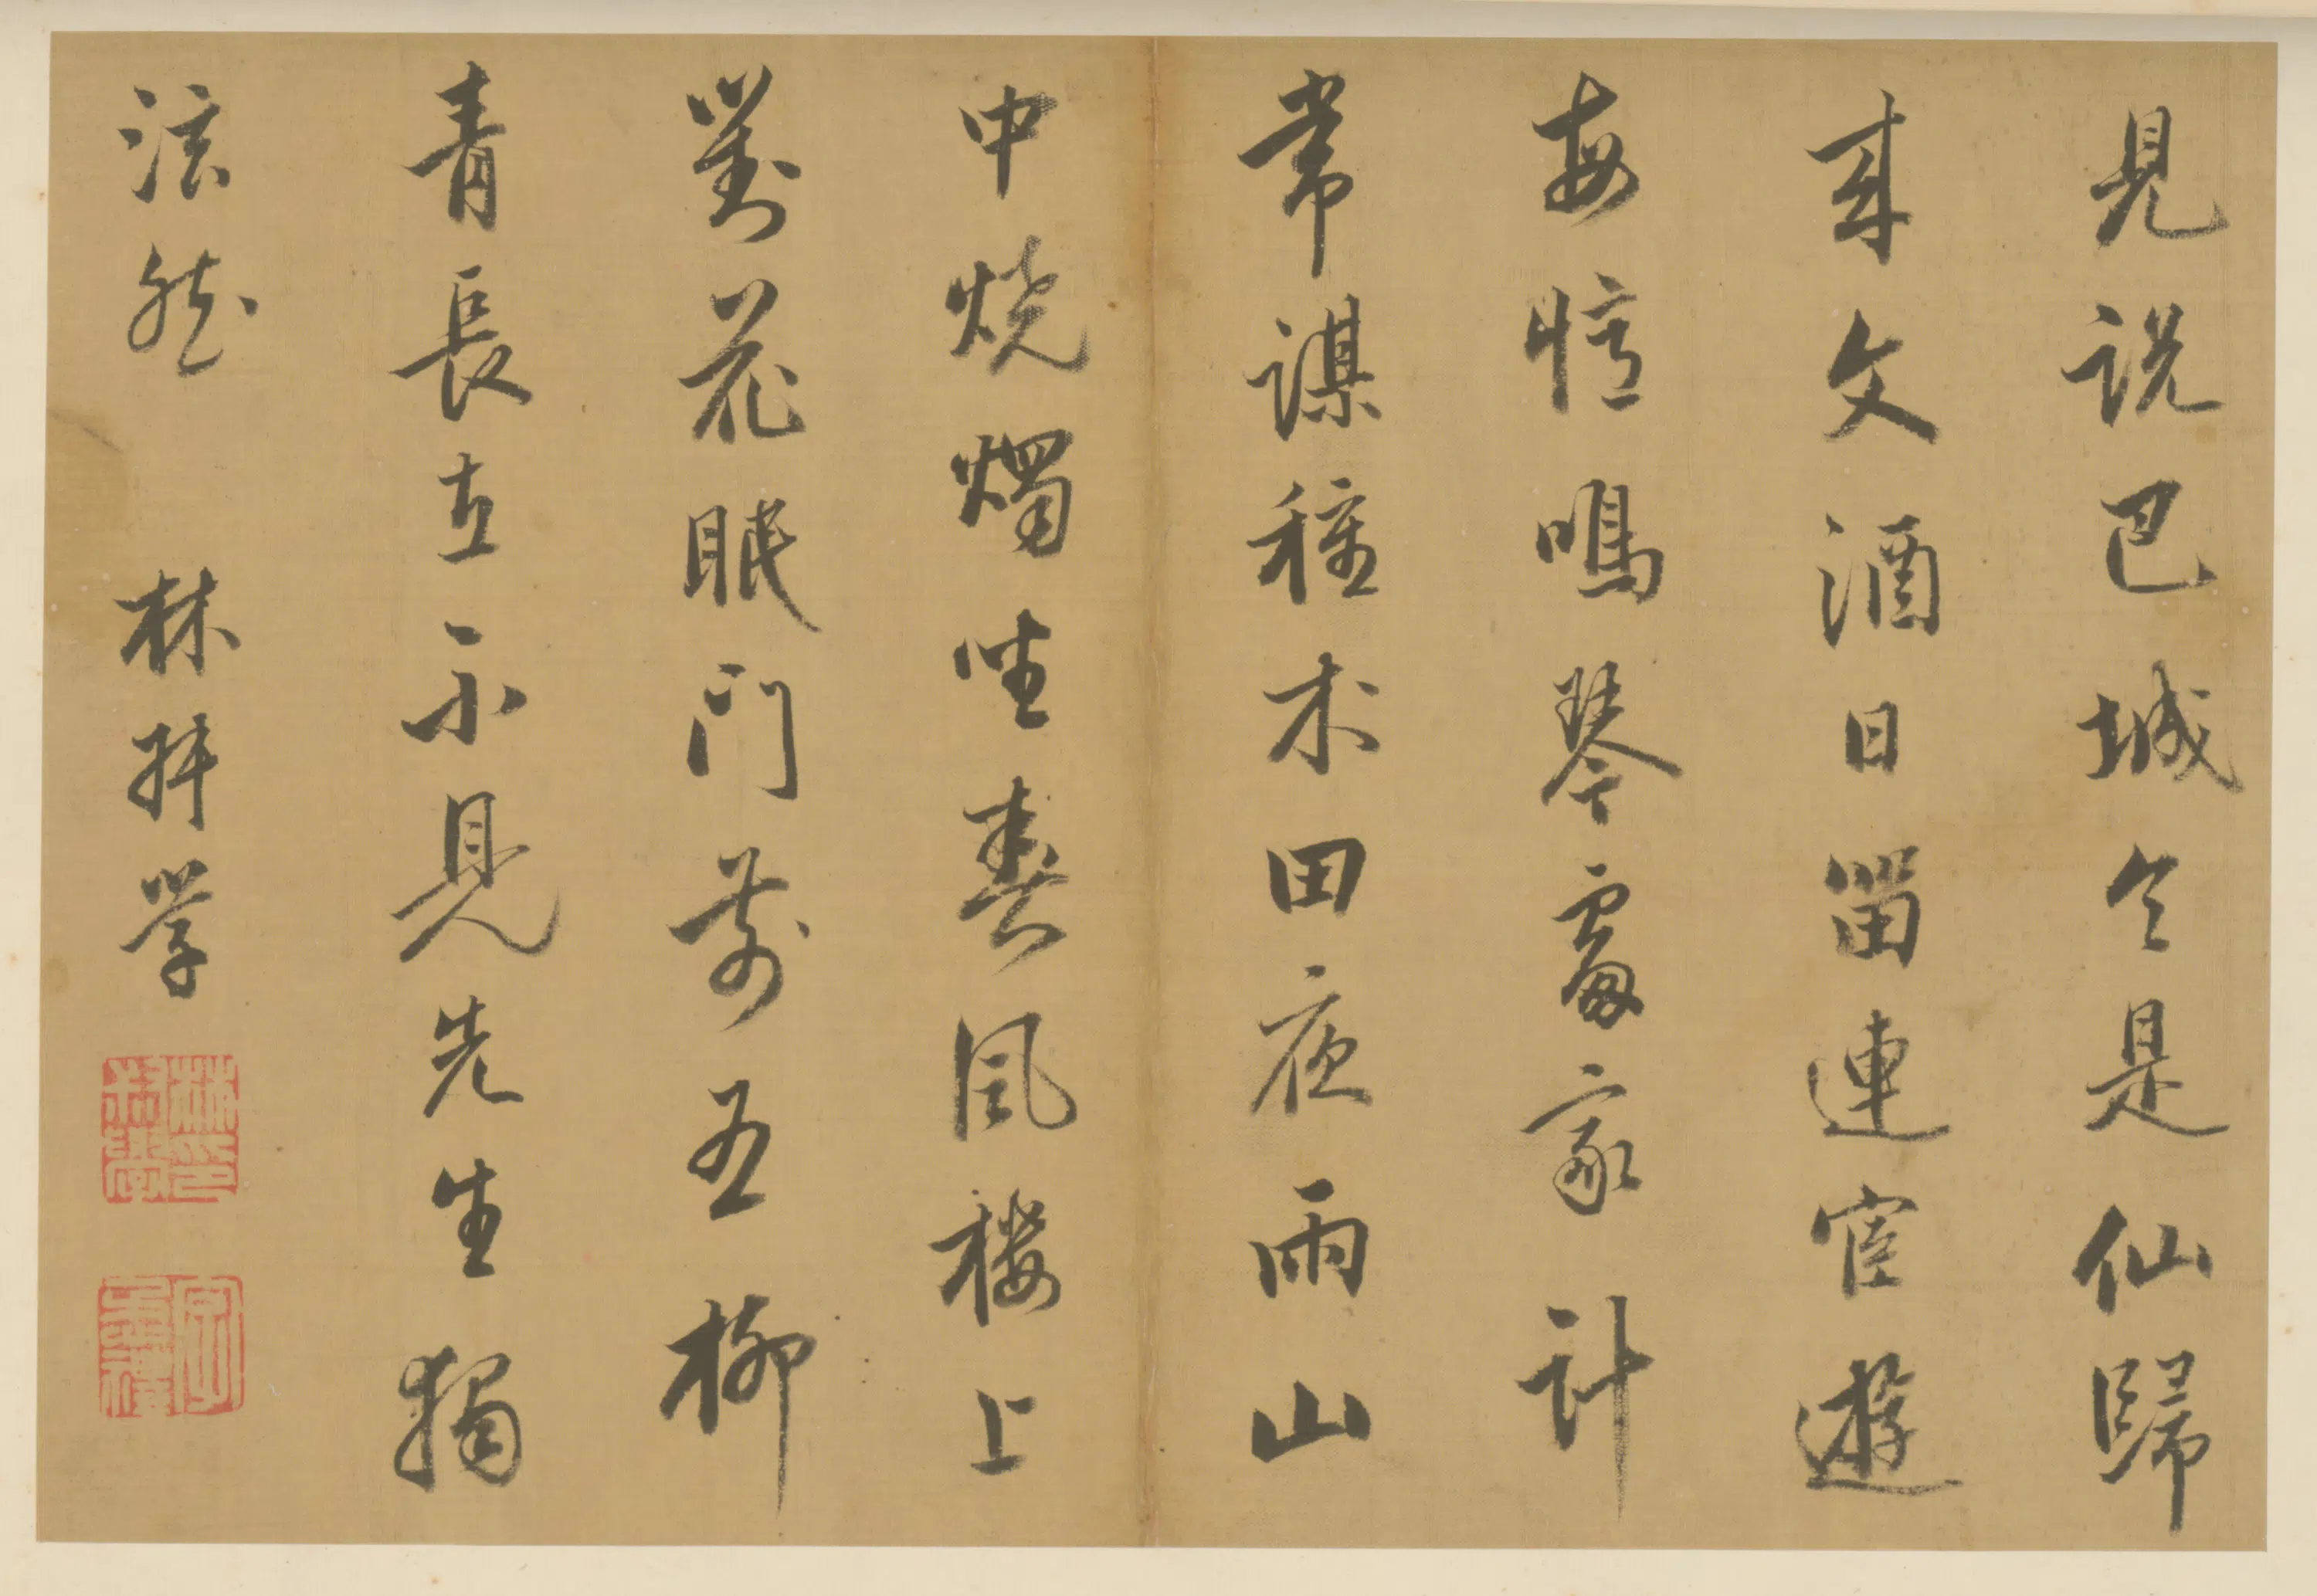 見説巴城令是仙歸
來文酒日留連宦遊
每憶鳴琴處家計
常謀種术田夜雨山
中燒燭坐春風樓上
對花眠門前五柳
青長在不見先生獨
泫然 林 學